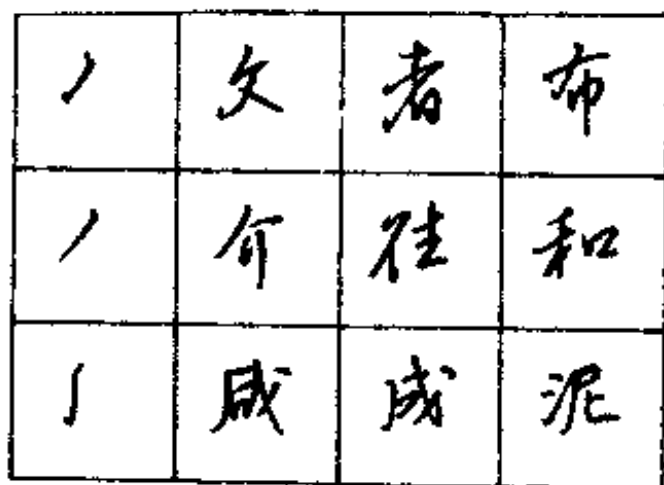 丿 文 者 布
丿 介 往 和
丿 咸 成 泥